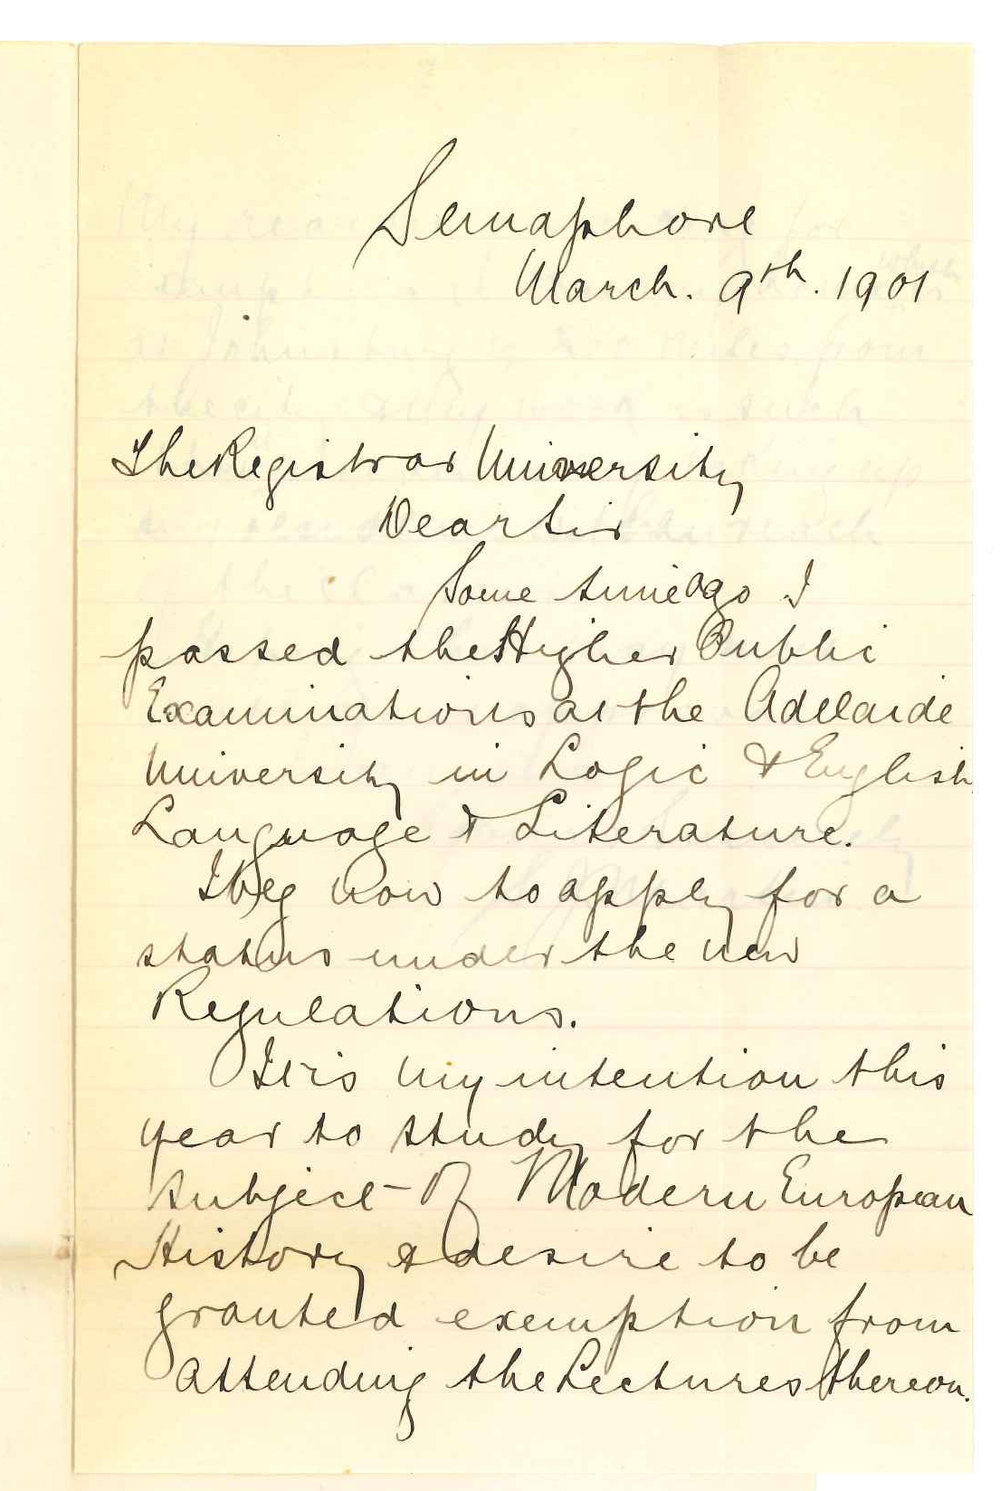 Semaphore
March. 9th. 1901
The Registrar University
Dear Sir
Some time ago I
passed the Higher Public
Examinations at the Adelaide
University in Logic & English
Language & Literature.
I beg now to apply for a
status under the new
Regulations.
It is my intention this
year to study for the
subject of Modern European
History & desire to be
granted exemption from
attending the Lectures thereon.